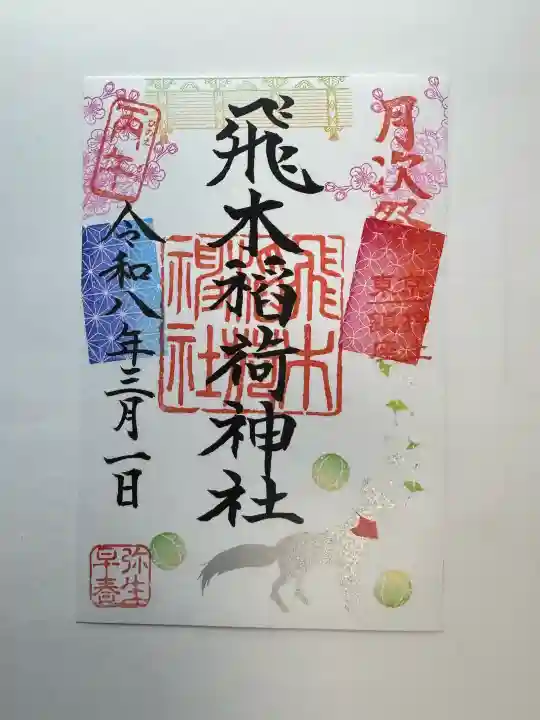 月次祭
飛木稲荷神社
飛木稲荷神社
丙午
ひのえ
令和八年三月一日
弥生
早春